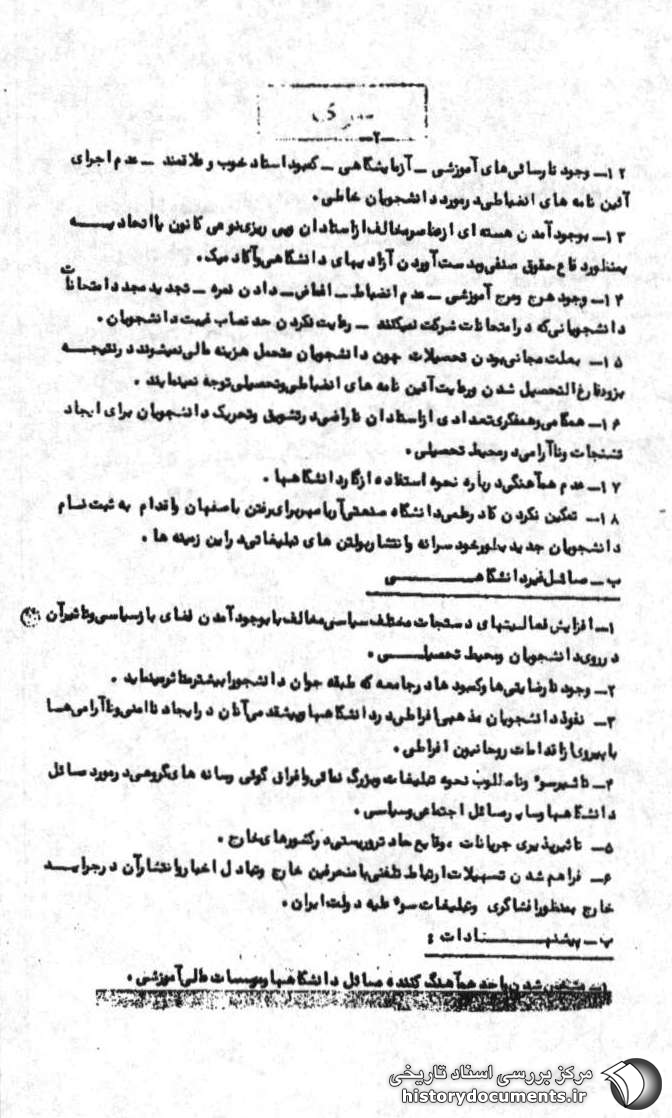 سری
-۲-
۱۲- وجود نارسائی های آموزشی - آزمایشگاهی - کمبود استاد خوب و علاقمند - عدم اجرای
آئین نامه های انضباطی در مورد دانشجویان خاطی.
۱۳- بوجود آمدن هسته ای از عناصر مخالف از استادان وپی ریزی نوعی کانون یا اتحادیــــه
بمنظور دفاع حقوق صنفی و بدست آوردن آزادیهای دانشگاهی و آکادمیک.
۱۴- وجود هرج ومرج آموزشی - عدم انضباط - اغماض - دادن نمره - تجدید مجدد امتحانات
دانشجویانی که در امتحانات شرکت نمیکنند - رعایت نکردن حد نصاب غیبت دانشجویان.
۱۵- بعلت مجانی بودن تحصیلات چون دانشجویان متحمل هزینه مالی نمیشوند در نتیجــه
بزود فارغ التحصیل شدن ورعایت آئین نامه های انضباطی وتحصیلی توجه نمینمایند.
۱۶- همگامی وهمفکری تعدادی از استادان ناراضی در تشویق وتحریک دانشجویان برای ایجاد
تشنجات وناآرامی در محیط تحصیلی.
۱۷- عدم همآهنگی درباره نحوه استفاده از گارد دانشگاهها.
۱۸- تمکین نکردن کادر علمی دانشگاه صنعتی آریامهر برای رفتن باصفهان واقدام به ثبت نــام
دانشجویان جدید بطور خودسرانه وانتشار بولتن های تبلیغاتی در این زمینه ها.
ب - مسائل غیر دانشگاهـــــــی
۱- افزایش فعالیتهای دستجات مختلف سیاسی مخالف با بوجود آمدن فضای باز سیاسی وتاثیر آن
در روی دانشجویان ومحیط تحصیلــــی.
۲- وجود نارضایتی ها وکمبودها در جامعه که طبقه جوان دانشجو را بیشتر متاثر مینماید.
۳- نفوذ دانشجویان مذهبی افراطی در دانشگاهها وپیشقدمی آنان در ایجاد ناامنی وناآرامی هـا
با پیروی از اقدامات روحانیون افراطی.
۴- تاثیر سوء ونامطلوب نحوه تبلیغات وبزرگ نمائی واغراق گوئی رسانه های گروهی در مورد مسائل
دانشگاهها وسایر مسائل اجتماعی وسیاسی.
۵- تاثیر پذیری جریانات، وقایع حاد تروریستی در کشورهای خارج.
۶- فراهم شدن تسهیلات ارتباط تلفنی با منحرفین خارج وتبادل اخبار وانتشار آن در جرایــد
خارج بمنظور افشاگری وتبلیغات سوء علیه دولت ایران.
پ - پیشنهـــــــادات:
۱- مشخص شدن واحد همآهنگ کننده مسائل دانشگاهها وموسسات عالی آموزشی.
مرکز بررسی اسناد تاریخی
historydocuments.ir